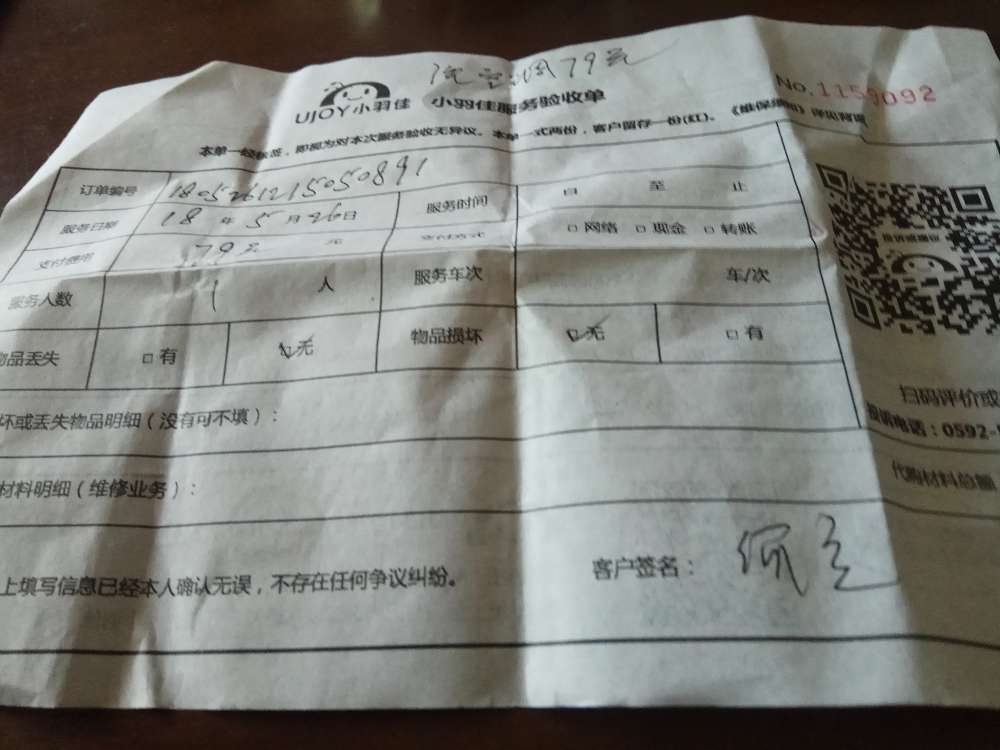 洗空调79元
UJOY小羽佳 小羽佳服务验收单
No.1159092
本单一经核签，即视为对本次服务验收无异议。本单一式两份，客户留存一份(红)。《维保须知》详见背面
订单编号 180526121505089 1
服务日期 18 年 5 月 26 日 服务时间 自 至 止
支付费用 79元 元 支付方式 □ 网络 □ 现金 □ 转账
服务人数 1 人 服务车次 车/次
物品丢失 □ 有 ☑无 物品损坏 ☑无 □ 有
扫码评价或
坏或丢失物品明细（没有可不填）：
投诉电话：0592-
材料明细（维修业务）：
代购材料总额
上填写信息已经本人确认无误，不存在任何争议纠纷。
客户签名：